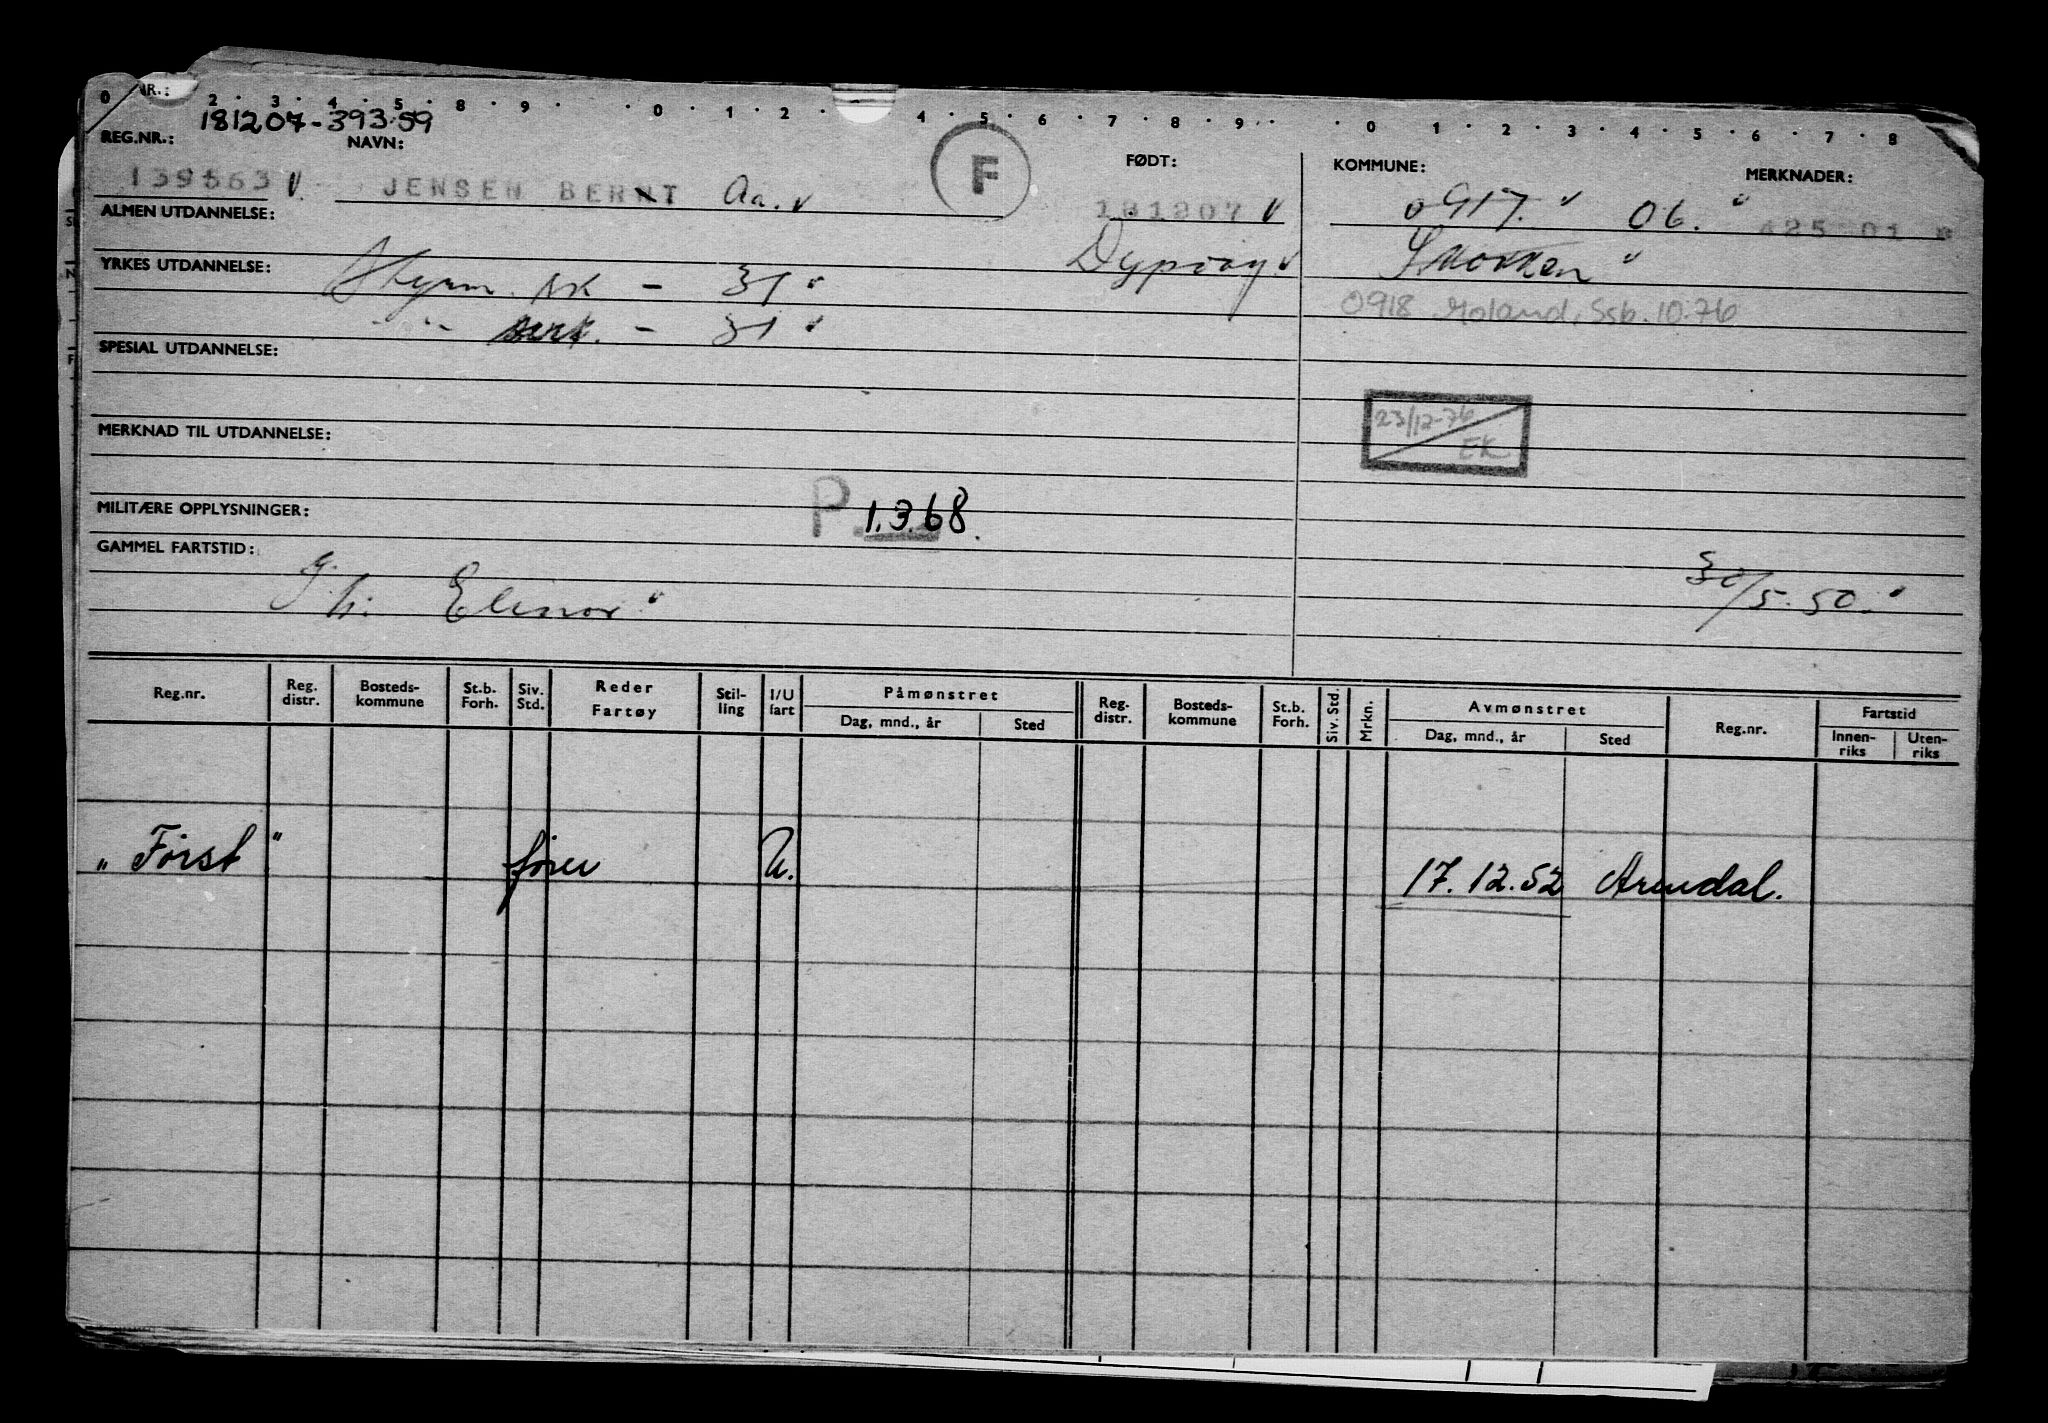 0 NR.: 2 · 3 · 4 · 5 · 8 · 9 · 0 · 1 · 2 · 4 · 5 · 6 · 7 · 8 · 9 · 0 · 1 · 2 · 3 · 4 · 5 · 6 · 7 · 8
181207-39359
REG.NR.: NAVN: FØDT: KOMMUNE: MERKNADER:
139563 JENSEN BERNT Aa. F 181207 0917. 06.
ALMEN UTDANNELSE: Dypvåg
YRKES UTDANNELSE: Styrm. sk - 31
0918 Moland, Ssb. 10.76
" - sert. - 31
SPESIAL UTDANNELSE:
23/12-76
EK
MERKNAD TIL UTDANNELSE:
MILITÆRE OPPLYSNINGER: P. 1.3.68.
GAMMEL FARTSTID:
Elinor 30/5-50.
Reg.nr. Reg. distr. Bosteds-kommune St.b. Forh. Siv. Std. Reder Fartøy Stil-ling I/U fart Påmønstret Reg. distr. Bosteds-kommune St.b. Forh. Siv. Std. Mrkn. Avmønstret Reg.nr. Fartstid
Dag, mnd., år Sted Dag, mnd., år Sted Innen-riks Uten-riks
"Først" fører U. 17.12.52 Arendal.